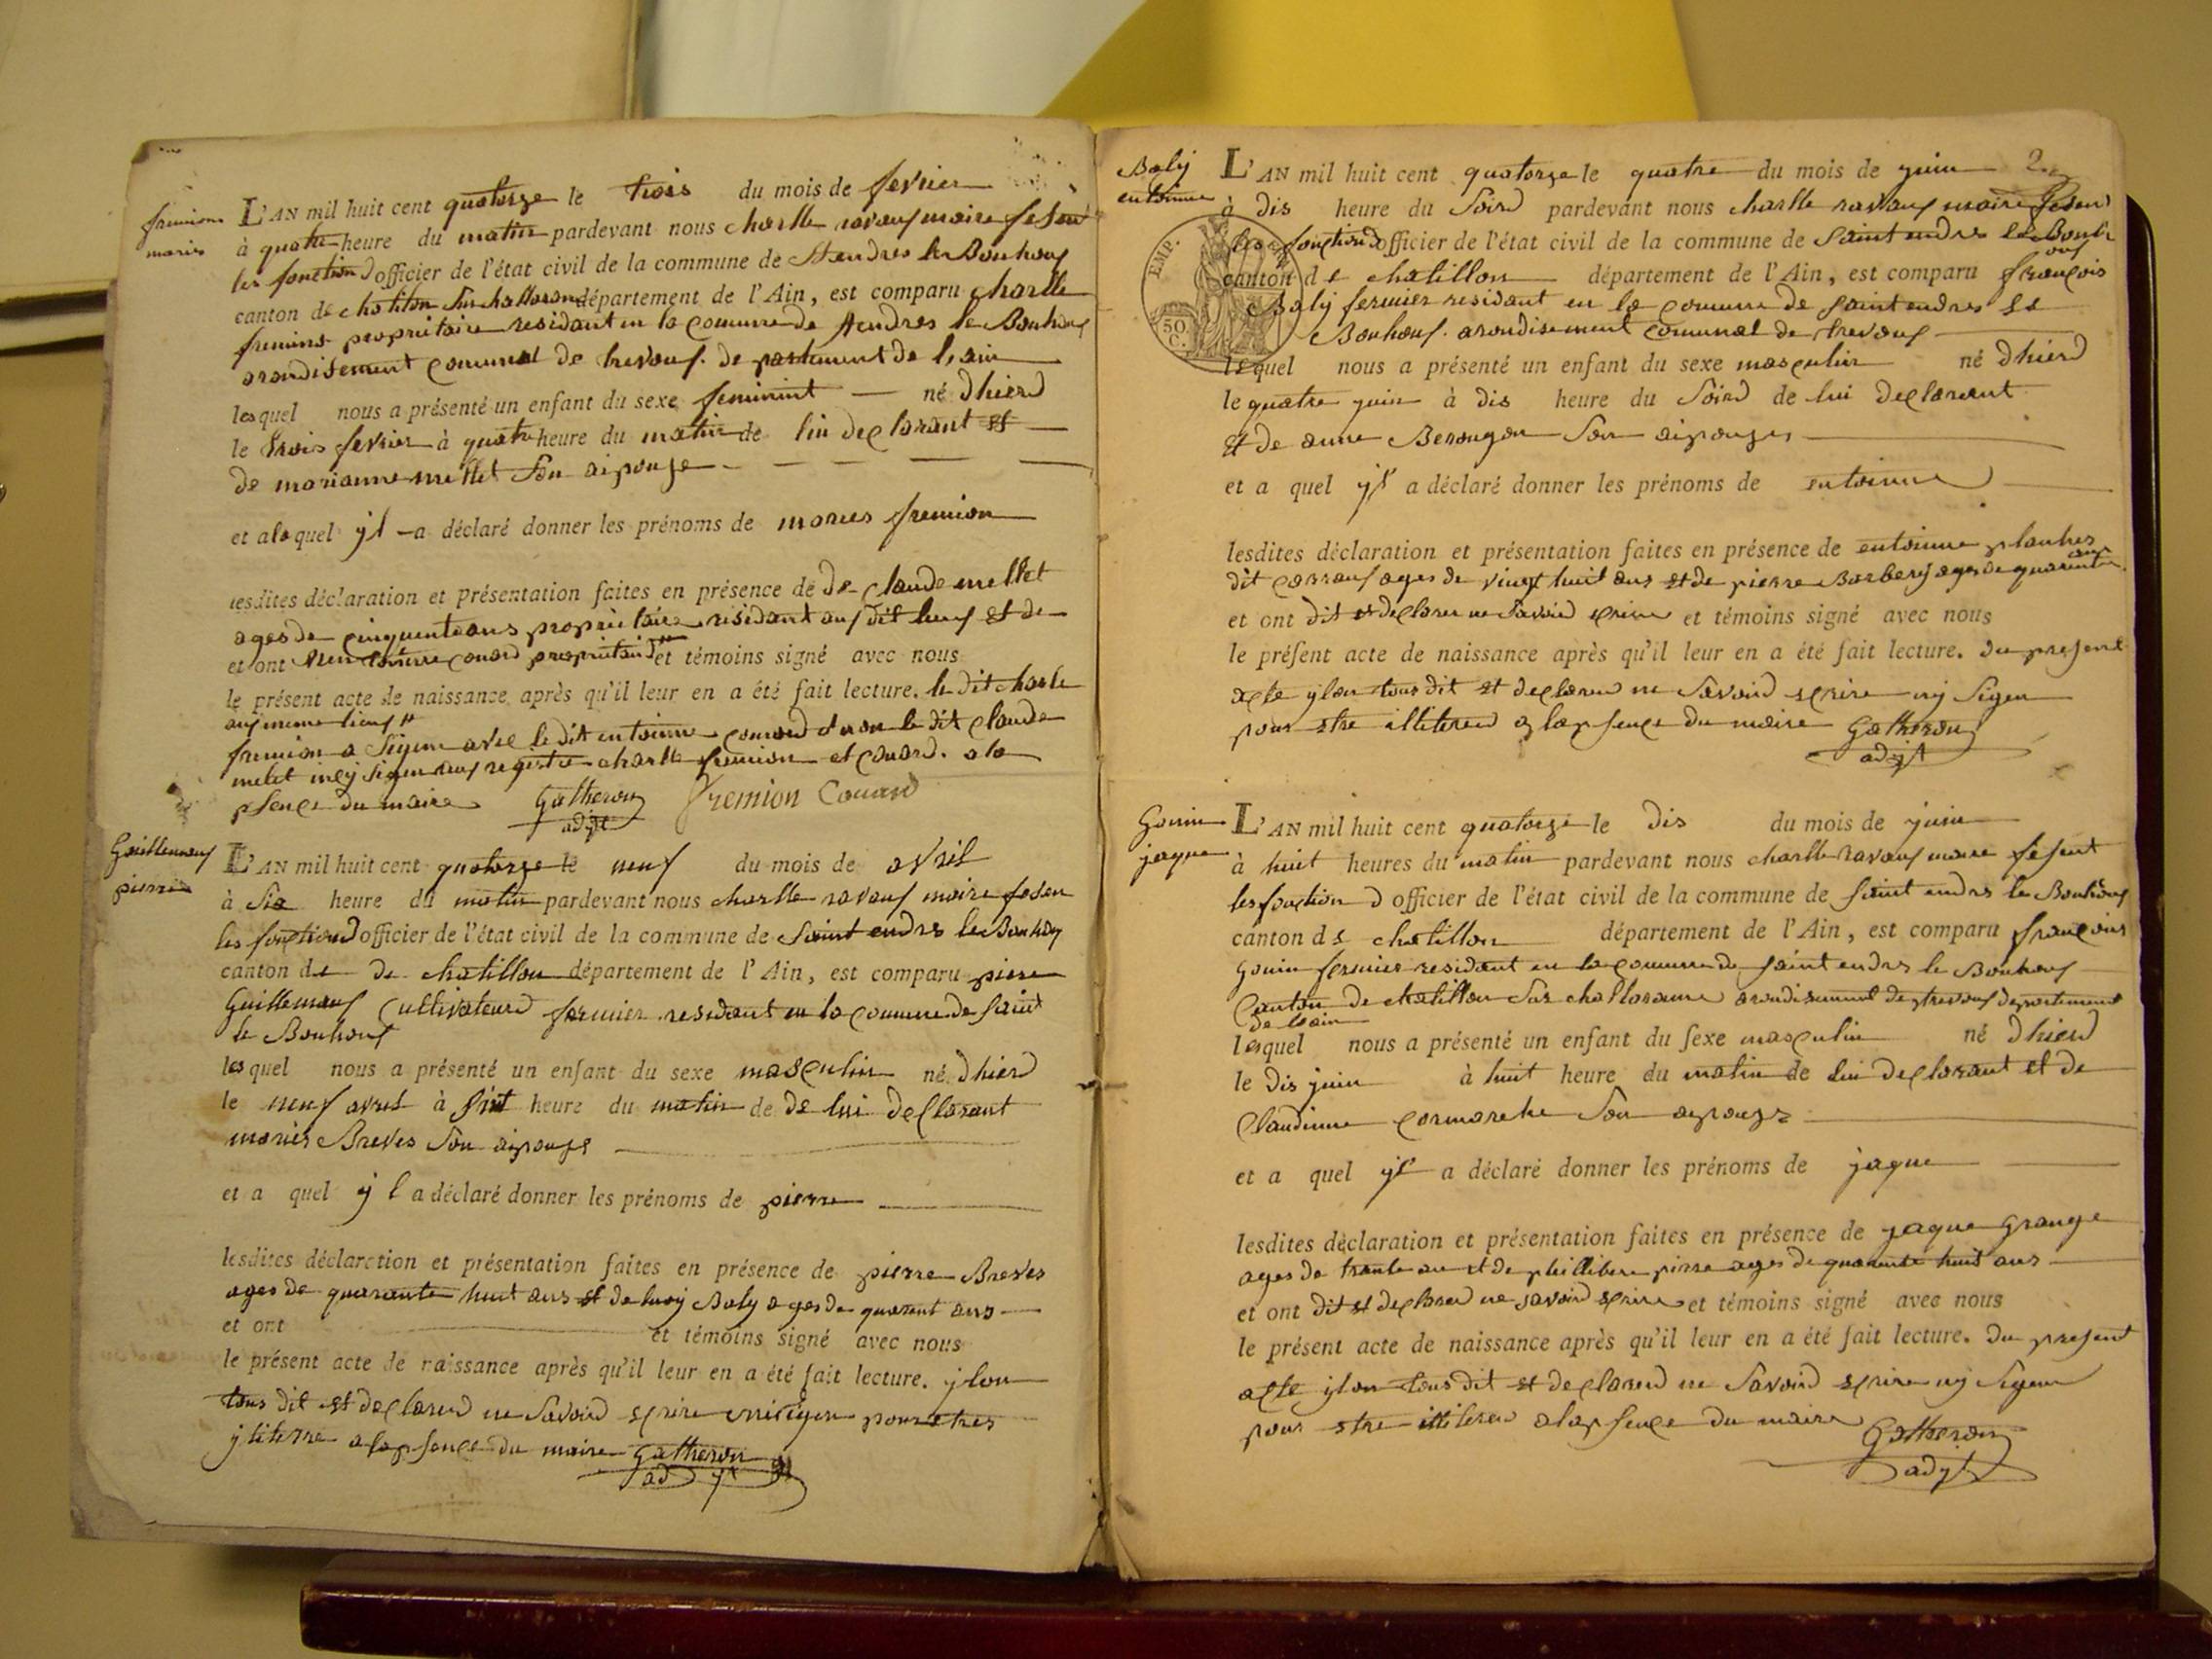 fremion
maries
L'AN mil huit cent quatorze le trois du mois de fevrier
à quatre heure du matin pardevant nous charlle ravauf maire fesent
les fonction d officier de l'état civil de la commune de St endres le Bouhouf
canton de chatilon sur challaron département de l'Ain, est comparu charlle
fremion propriétaire residant en la comune de St endres le Bouhouf
arondisement comunal de trevouf departement de lain
lesquel nous a présenté un enfant du sexe feminint né dhierd
le trois fevrier à quatre heure du matin de lui declarant et
de marianne mellet son aipouse
et ala quel yl a déclaré donner les prénoms de maries fremion
lesdites déclaration et présentation faites en présence de de claude mellet
ages de cinquente ans propriétaire residant auf dit lieuf et de
et ont entoinne couard propriétaird et témoins signé avec nous
le présent acte de naissance après qu'il leur en a été fait lecture. le dit charle
auf meme lieuf
fremion a signe avec le dit entoinne couard et non le dit claude
melet signe auf registre charlle fremion et couard. a la
psence du maire Gatheron fremion Couard
adjt
Guillemauf
pierre
L'AN mil huit cent quatorze le neuf du mois de avril
à six heure du matin pardevant nous charlle ravauf maire fesen
les fonctiond officier de l'état civil de la commune de Saint endres le Bouhouf
canton de de chatillon département de l'Ain, est comparu piere
Guillemauf cultivateurd fermier residant en la comune de saint
le Bouhouf
lesquel nous a présenté un enfant du sexe masculin né dhierd
le neuf avril à heure du matin de de lui declarant
maries Breves son aipouse
et a quel yl a déclaré donner les prénoms de pierre
lesdites déclaration et présentation faites en présence de pierre Breves
ages de quarante huit ans et de Baly ages de quarent ans
et ont et témoins signé avec nous
le présent acte de naissance après qu'il leur en a été fait lecture. ylon
tous dit et declarerd ne savoird scrire ni signer pour etres
yliterre a lapsence du maire Gatheron
adjt
Baly
entoinne
2
L'AN mil huit cent quatorze le quatre du mois de juin
à dis heure du soird pardevant nous charlle ravauf maire fesent
les fonction d officier de l'état civil de la commune de saint endres le Bouh
ouf
canton de chatillon département de l'Ain, est comparu françois
Baly fermier residant en la comune de saint endres le
Bouhouf. arondisement comunal de trevouf
EMP.
50
C.
lequel nous a présenté un enfant du sexe masculin né dhierd
le quatre juin à dis heure du soird de lui declarant
et de anne Berougon son aipouses
et a quel yl a déclaré donner les prénoms de entoinne
lesdites déclaration et présentation faites en présence de entoinne planhes
dit carrauf ages de vingt huit ans et de pierre Barberef ages de quarente
ans
et ont dit et declarer ne savoird scrire et témoins signé avec nous
le présent acte de naissance après qu'il leur en a été fait lecture. du present
acte ylon tous dit et declarerd ne savoird scrire ny signer
pour etre illitererd a lapsence du maire Gatheron
adjt
Gonin
jaque
L'AN mil huit cent quatorze le dis du mois de juin
à huit heures du matin pardevant nous charlle ravauf maire fesent
les fonction d officier de l'état civil de la commune de saint endres le Bouhouf
canton de chatillon département de l'Ain, est comparu françois
Gonin fermier residant en la comune de saint endres le Bouhouf
Canton de chatillon sur challaronne arondisement de trevouf departement
de lain
lesquel nous a présenté un enfant du sexe masculin né dhierd
le dis juin à huit heure du matin de lui declarant et de
Claudinne cormareche son aipouse
et a quel yl a déclaré donner les prénoms de jaque
lesdites déclaration et présentation faites en présence de jaque Grange
ages de trante ans et de phillibere pirre ages de quarente huit ans
et ont dit et declarerd ne savoird scrire et témoins signé avec nous
le présent acte de naissance après qu'il leur en a été fait lecture. du present
acte ylon tous dit et declarerd ne savoird scrire ny signer
pour etre illitererd a lapsence du maire Gatheron
adjt